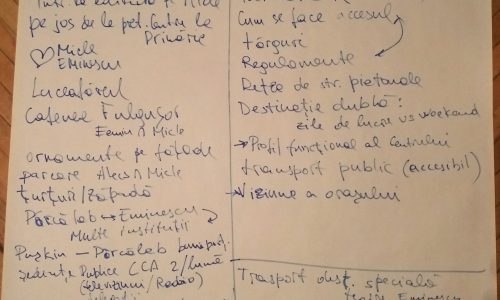 pe jos de la
Primărie
Micle
Eminescu
Luceafărul
Cafenea Fulgusor
Eemin & Micle
ornamente pe fațade
parcare Alecu & Micle
țurțuri/zăpadă
Pârcălab → Eminescu
Multe instituții
Pușkin — Pârcălab
Ședințe Publice CCA 2/lună
(televiziuni/Radio)
Cum se face accesul
târguri
Regulamente
Rețea de str. pietonale
Destinație dublă:
zile de lucru vs weekend
→ Profil funcțional al Centrului
transport public (accesibil)
→ Viziune a orașului
Trasport dest. specială
Eminescu